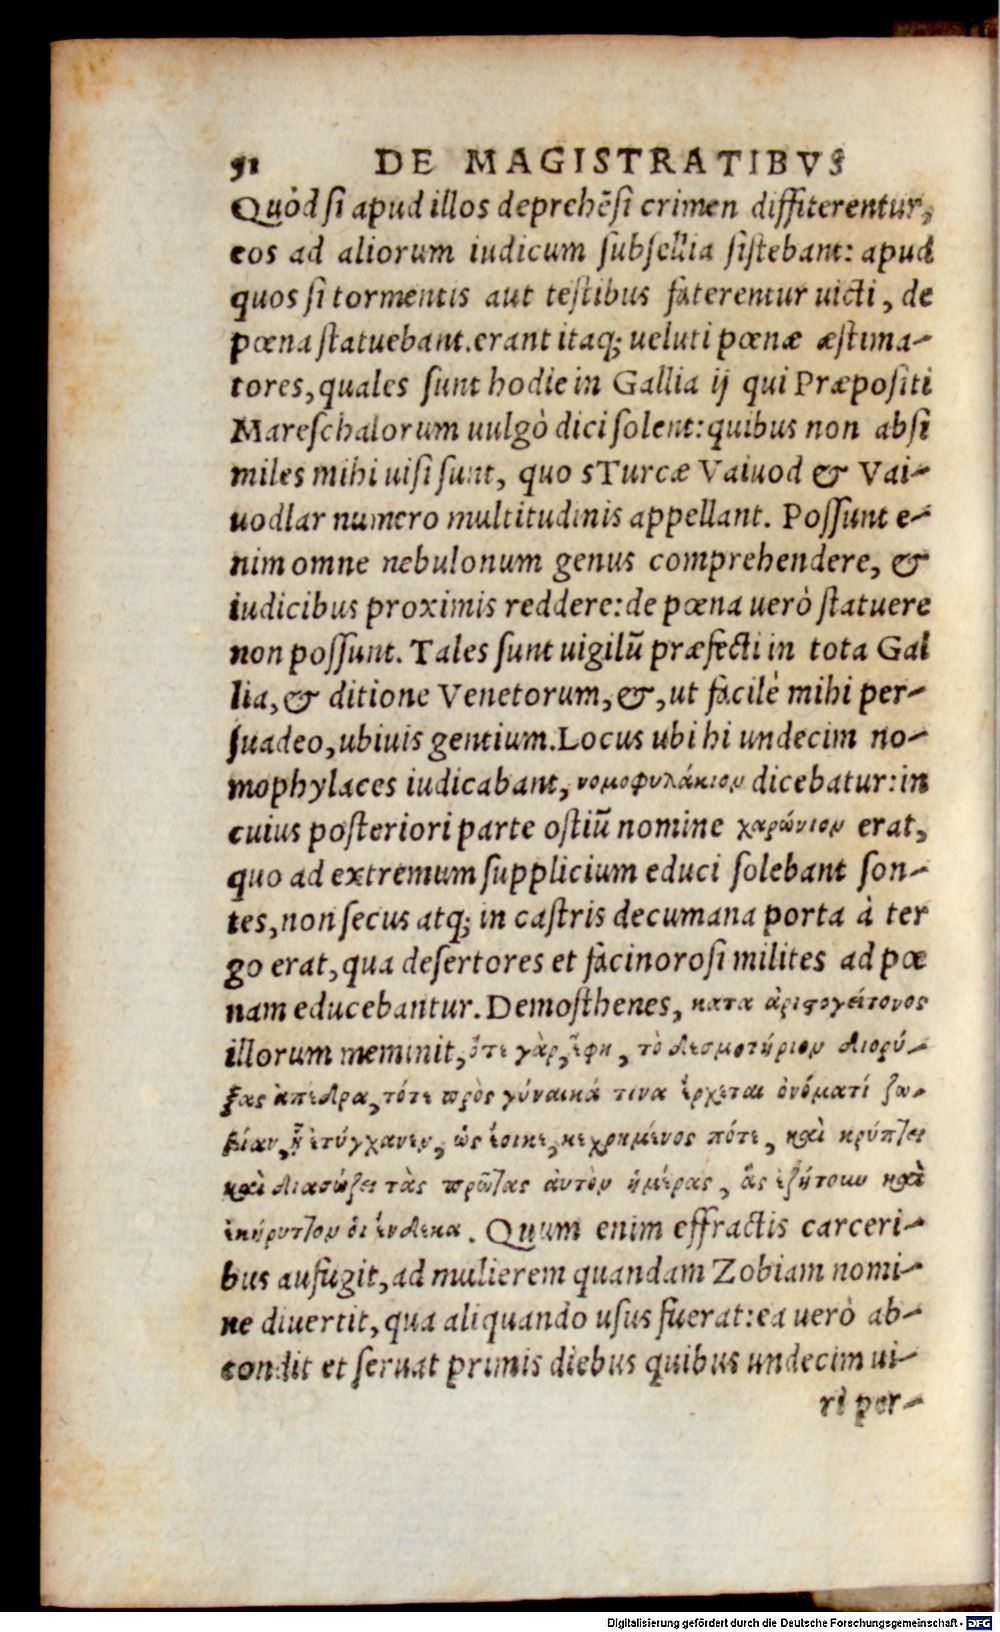 91 DE MAGISTRATIBVS
Quòd si apud illos deprehēsi crimen diffiterentur,
eos ad aliorum iudicum subsellia sistebant: apud
quos si tormentis aut testibus faterentur uicti, de
pœna statuebant.erant itaq; ueluti pœnæ æstima-
tores, quales sunt hodie in Gallia ij qui Præpositi
Mareschalorum uulgò dici solent: quibus non absi
miles mihi uisi sunt, quo sTurcæ Vaiuod & Vai-
uodlar numero multitudinis appellant. Possunt e-
nim omne nebulonum genus comprehendere, &
iudicibus proximis reddere: de pœna uerò statuere
non possunt. Tales sunt uigilū præfecti in tota Gal
lia, & ditione Venetorum, &, ut facilè mihi per-
suadeo, ubiuis gentium. Locus ubi hi undecim no-
mophylaces iudicabant, νομοφυλάκιον dicebatur: in
cuius posteriori parte ostiū nomine χαρώνιον erat,
quo ad extremum supplicium educi solebant son-
tes, non secus atq; in castris decumana porta à ter
go erat, qua desertores et facinorosi milites ad pœ
nam educebantur. Demosthenes, κατα ἀριςογείτονος
illorum meminit, ὅτε γὰρ, ἔφη, τὸ δεσμοτήριον διορύ-
ξας ἀπέδρα, τότε πρὸς γύναικά τινα ἔρχεται ὀνόματί ζω-
βίαν, ᾗ ἐτύγχανεν, ὡς ἔοικε, κεχρημένος πότε, καὶ κρύπτει
καὶ διασώζει τὰς πρῶτας ἀυτὸν ἡμέρας, ἃς ἐζήτουν καὶ
ἐκήρυττον ὁι ἕνδεκα. Quum enim effractis carceri-
bus aufugit, ad mulierem quandam Zobiam nomi-
ne diuertit, qua aliquando usus fuerat: ea uerò ab-
condit et seruat primis diebus quibus undecim ui-
ri per-
Digitalisierung gefördert durch die Deutsche Forschungsgemeinschaft - DFG